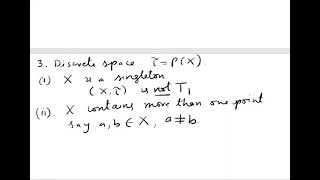 3. Discrete space. τ = P(X)
(i) X is a singleton
(X, τ) is not T₁
(ii) X contains more than one point
say a, b ∈ X, a ≠ b.